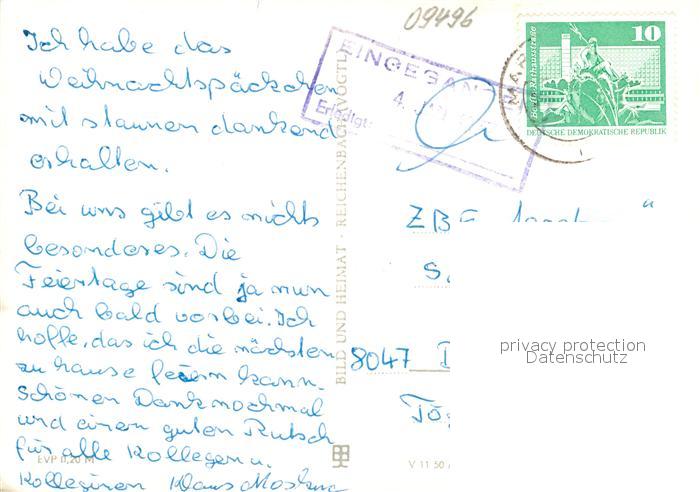 09496
Ich habe das
Weihnachtspäckchen
mit staunen dankend
erhalten.
Bei uns gibt es nichts
besonderes. Die
Feiertage sind ja nun
auch bald vorbei. Ich
hoffe, das ich die nächsten
zu hause feiern kann.
Schönen Dank nochmal
und einen guten Rutsch
für alle Kollegen u.
Kolleginen Klaus
EVP 0,20 M
BILD UND HEIMAT · REICHENBACH (VOGTL)
V 11 50
EINGEGAN
4. JAN
Erledigt:
10
Berlin, Rathausstraße
DEUTSCHE DEMOKRATISCHE REPUBLIK
MAR
An
ZBE "
S.
8047
privacy protection
Datenschutz